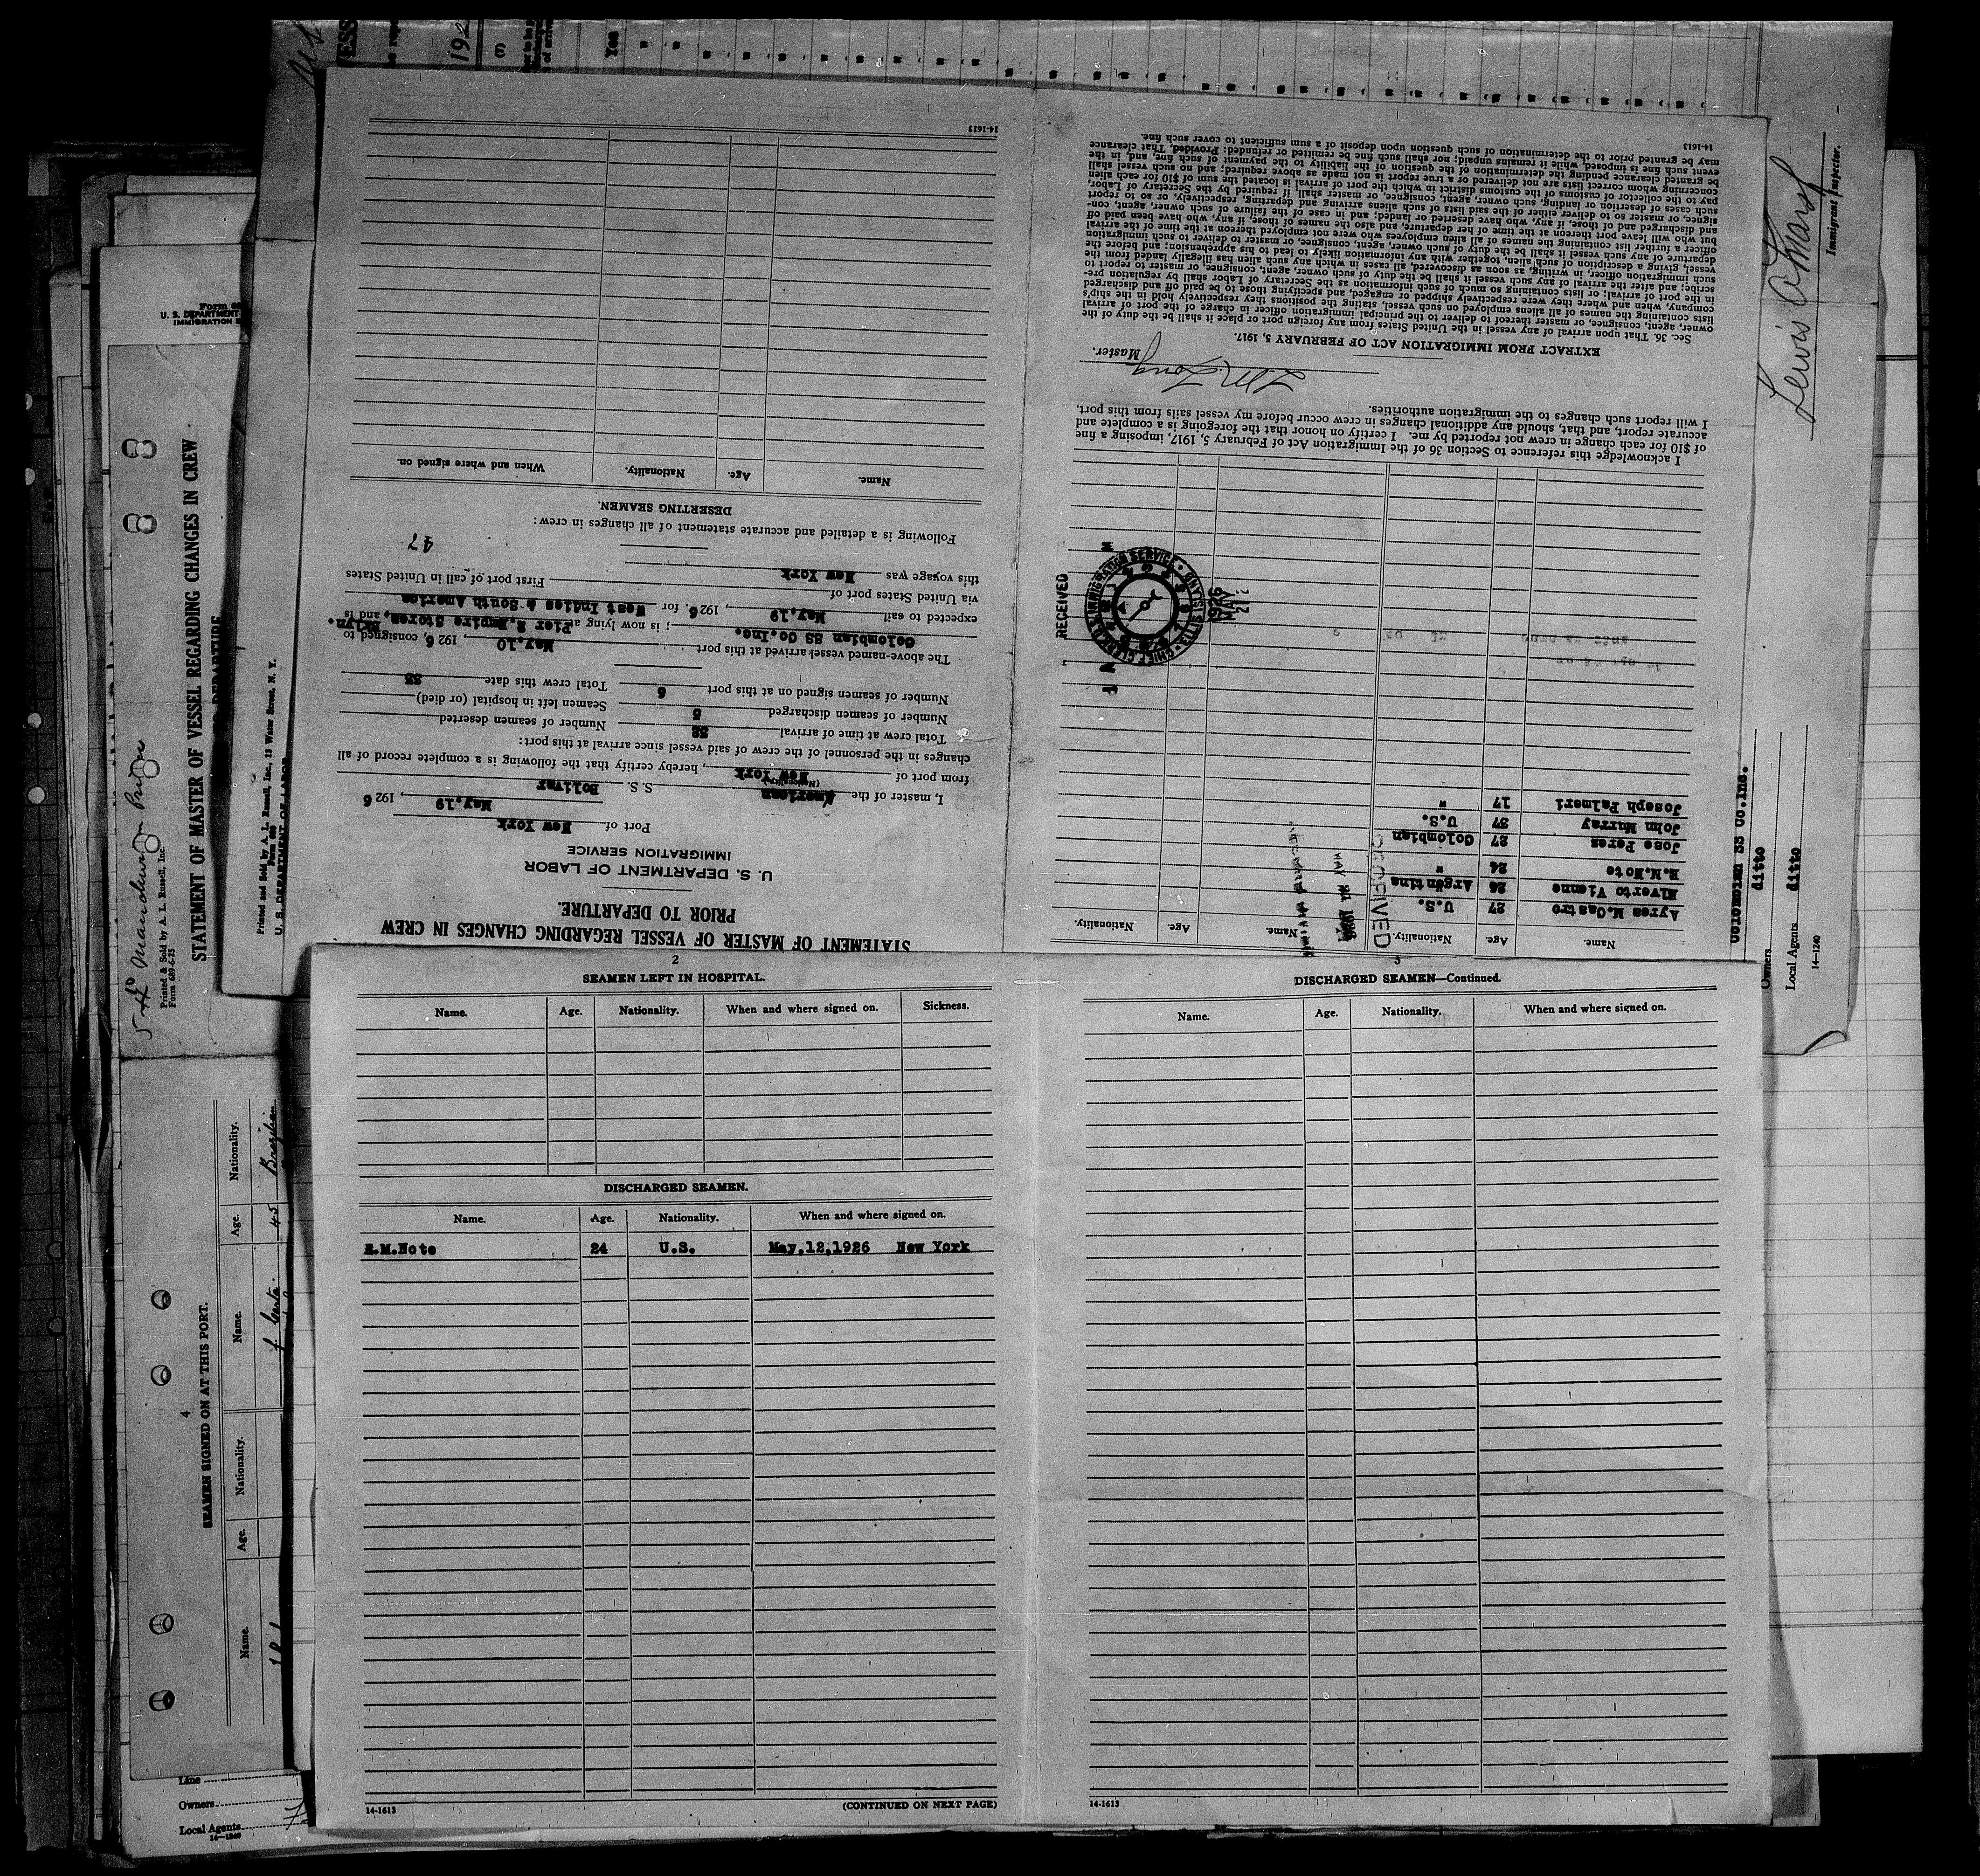 STATEMENT OF MASTER OF VESSEL REGARDING CHANGES IN CREW
PRIOR TO DEPARTURE.
U. S. DEPARTMENT OF LABOR
IMMIGRATION SERVICE
Port of New York
May,19, 1926
I, master of the American S. S. Bolivar
(Nationality)
from port of New York, hereby certify that the following is a complete record of all
changes in the personnel of the crew of said vessel since arrival at this port:
Total crew at time of arrival Number of seamen deserted
Number of seamen discharged 5 Seamen left in hospital (or died)
Number of seamen signed on at this port 6 Total crew this date 33
The above-named vessel arrived at this port May,10, 1926 consigned to
Colombian SS Co.Inc.; is now lying at Pier 2,Empire Stores, Bklyn. and is
expected to sail May,19, 1926, for West Indies & South America
via United States port of
this voyage was New York First port of call in United States
47
Following is a detailed and accurate statement of all changes in crew:
DESERTING SEAMEN.
Name. Age. Nationality. When and where signed on.
14-1613
Name. Age. Nationality. Name. Age. Nationality.
Ayres M.Castro 27 U.S.
Alverto Vianne 26 Argentina
E.M.Note 24 "
Jose Perez 27 Colombian
John Murray 37 U.S.
Joseph Palmeri 17 "
RECEIVED
CHIEF CLERK IMMIGRATION SERVICE ELLIS ISLAND
1926
MAY
21
RECEIVED
I acknowledge this reference to Section 36 of the Immigration Act of February 5, 1917, imposing a fine
of $10 for each change in crew not reported by me. I certify on honor that the foregoing is a complete and
accurate report, and that, should any additional changes in crew occur before my vessel sails from this port,
I will report such changes to the immigration authorities.
Master.
EXTRACT FROM IMMIGRATION ACT OF FEBRUARY 5, 1917.
Sec. 36. That upon arrival of any vessel in the United States from any foreign port or place it shall be the duty of the
owner, agent, consignee, or master thereof to deliver to the principal immigration officer in charge of the port of arrival
lists containing the names of all aliens employed on such vessel, stating the positions they respectively hold in the ship's
company, when and where they were respectively shipped or engaged, and specifying those to be paid off and discharged
in the port of arrival; or lists containing so much of such information as the Secretary of Labor shall by regulation pre-
scribe; and after the arrival of any such vessel it shall be the duty of such owner, agent, consignee, or master to report to
such immigration officer, in writing, as soon as discovered, all cases in which any such alien has illegally landed from the
vessel, giving a description of such alien, together with any information likely to lead to his apprehension; and before the
departure of any such vessel it shall be the duty of such owner, agent, consignee, or master to deliver to such immigration
officer a further list containing the names of all alien employees who were not employed thereon at the time of the arrival
but who will leave port thereon at the time of her departure, and also the names of those, if any, who have been paid off
and discharged and of those, if any, who have deserted or landed; and in case of the failure of such owner, agent, con-
signee, or master so to deliver either of the said lists of such aliens arriving and departing, respectively, or so to report
such cases of desertion or landing, such owner, agent, consignee, or master shall, if required by the Secretary of Labor,
pay to the collector of customs of the customs district in which the port of arrival is located the sum of $10 for each alien
concerning whom correct lists are not delivered or a true report is not made as above required; and no such vessel shall
be granted clearance pending the determination of the question of the liability to the payment of such fine, and, in the
event such fine is imposed, while it remains unpaid; nor shall such fine be remitted or refunded: Provided, That clearance
may be granted prior to the determination of such question upon deposit of a sum sufficient to cover such fine.
14-1613
2
SEAMEN LEFT IN HOSPITAL.
Name. Age. Nationality. When and where signed on. Sickness.
DISCHARGED SEAMEN.
Name. Age. Nationality. When and where signed on.
E.M.Note 24 U.S. May,12,1926 New York
14-1613 (CONTINUED ON NEXT PAGE)
3
DISCHARGED SEAMEN—Continued.
Name. Age. Nationality. When and where signed on.
14-1613
U. S. DEPARTMENT
STATEMENT OF MASTER OF VESSEL REGARDING CHANGES IN CREW
Printed & Sold by A. L. Russell, Inc.
Form 689-6-25
Printed and Sold by A. L. Russell, Inc., 13 Water Street, N. Y.
Form 689
U. S. DEPARTMENT OF LABOR
4
SEAMEN SIGNED ON AT THIS PORT.
Name. Age. Nationality. Name. Age. Nationality.
45 Brazilian
Line
Owners
Local Agents
14-1240
Lewis A Marsh
Immigrant Inspector.
Colombian SS Co.Inc.
Owners ditto
Local Agents ditto
14-1240
Yes